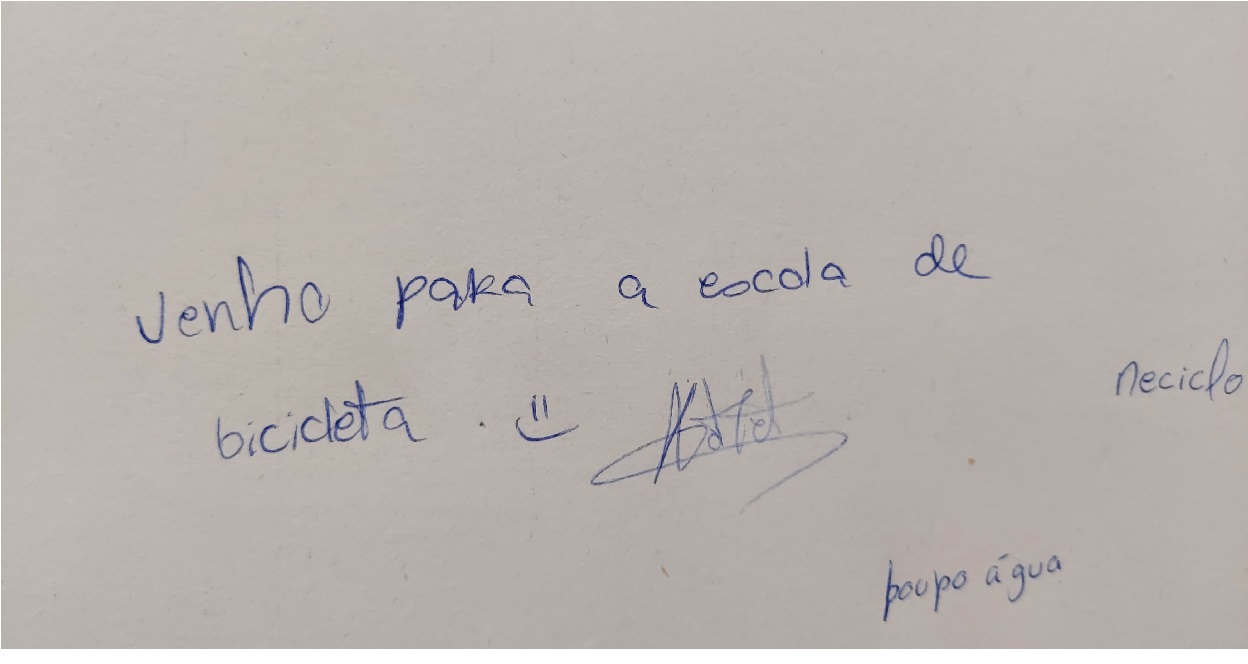 Venho para a escola de
bicicleta. =)
reciclo
poupo água